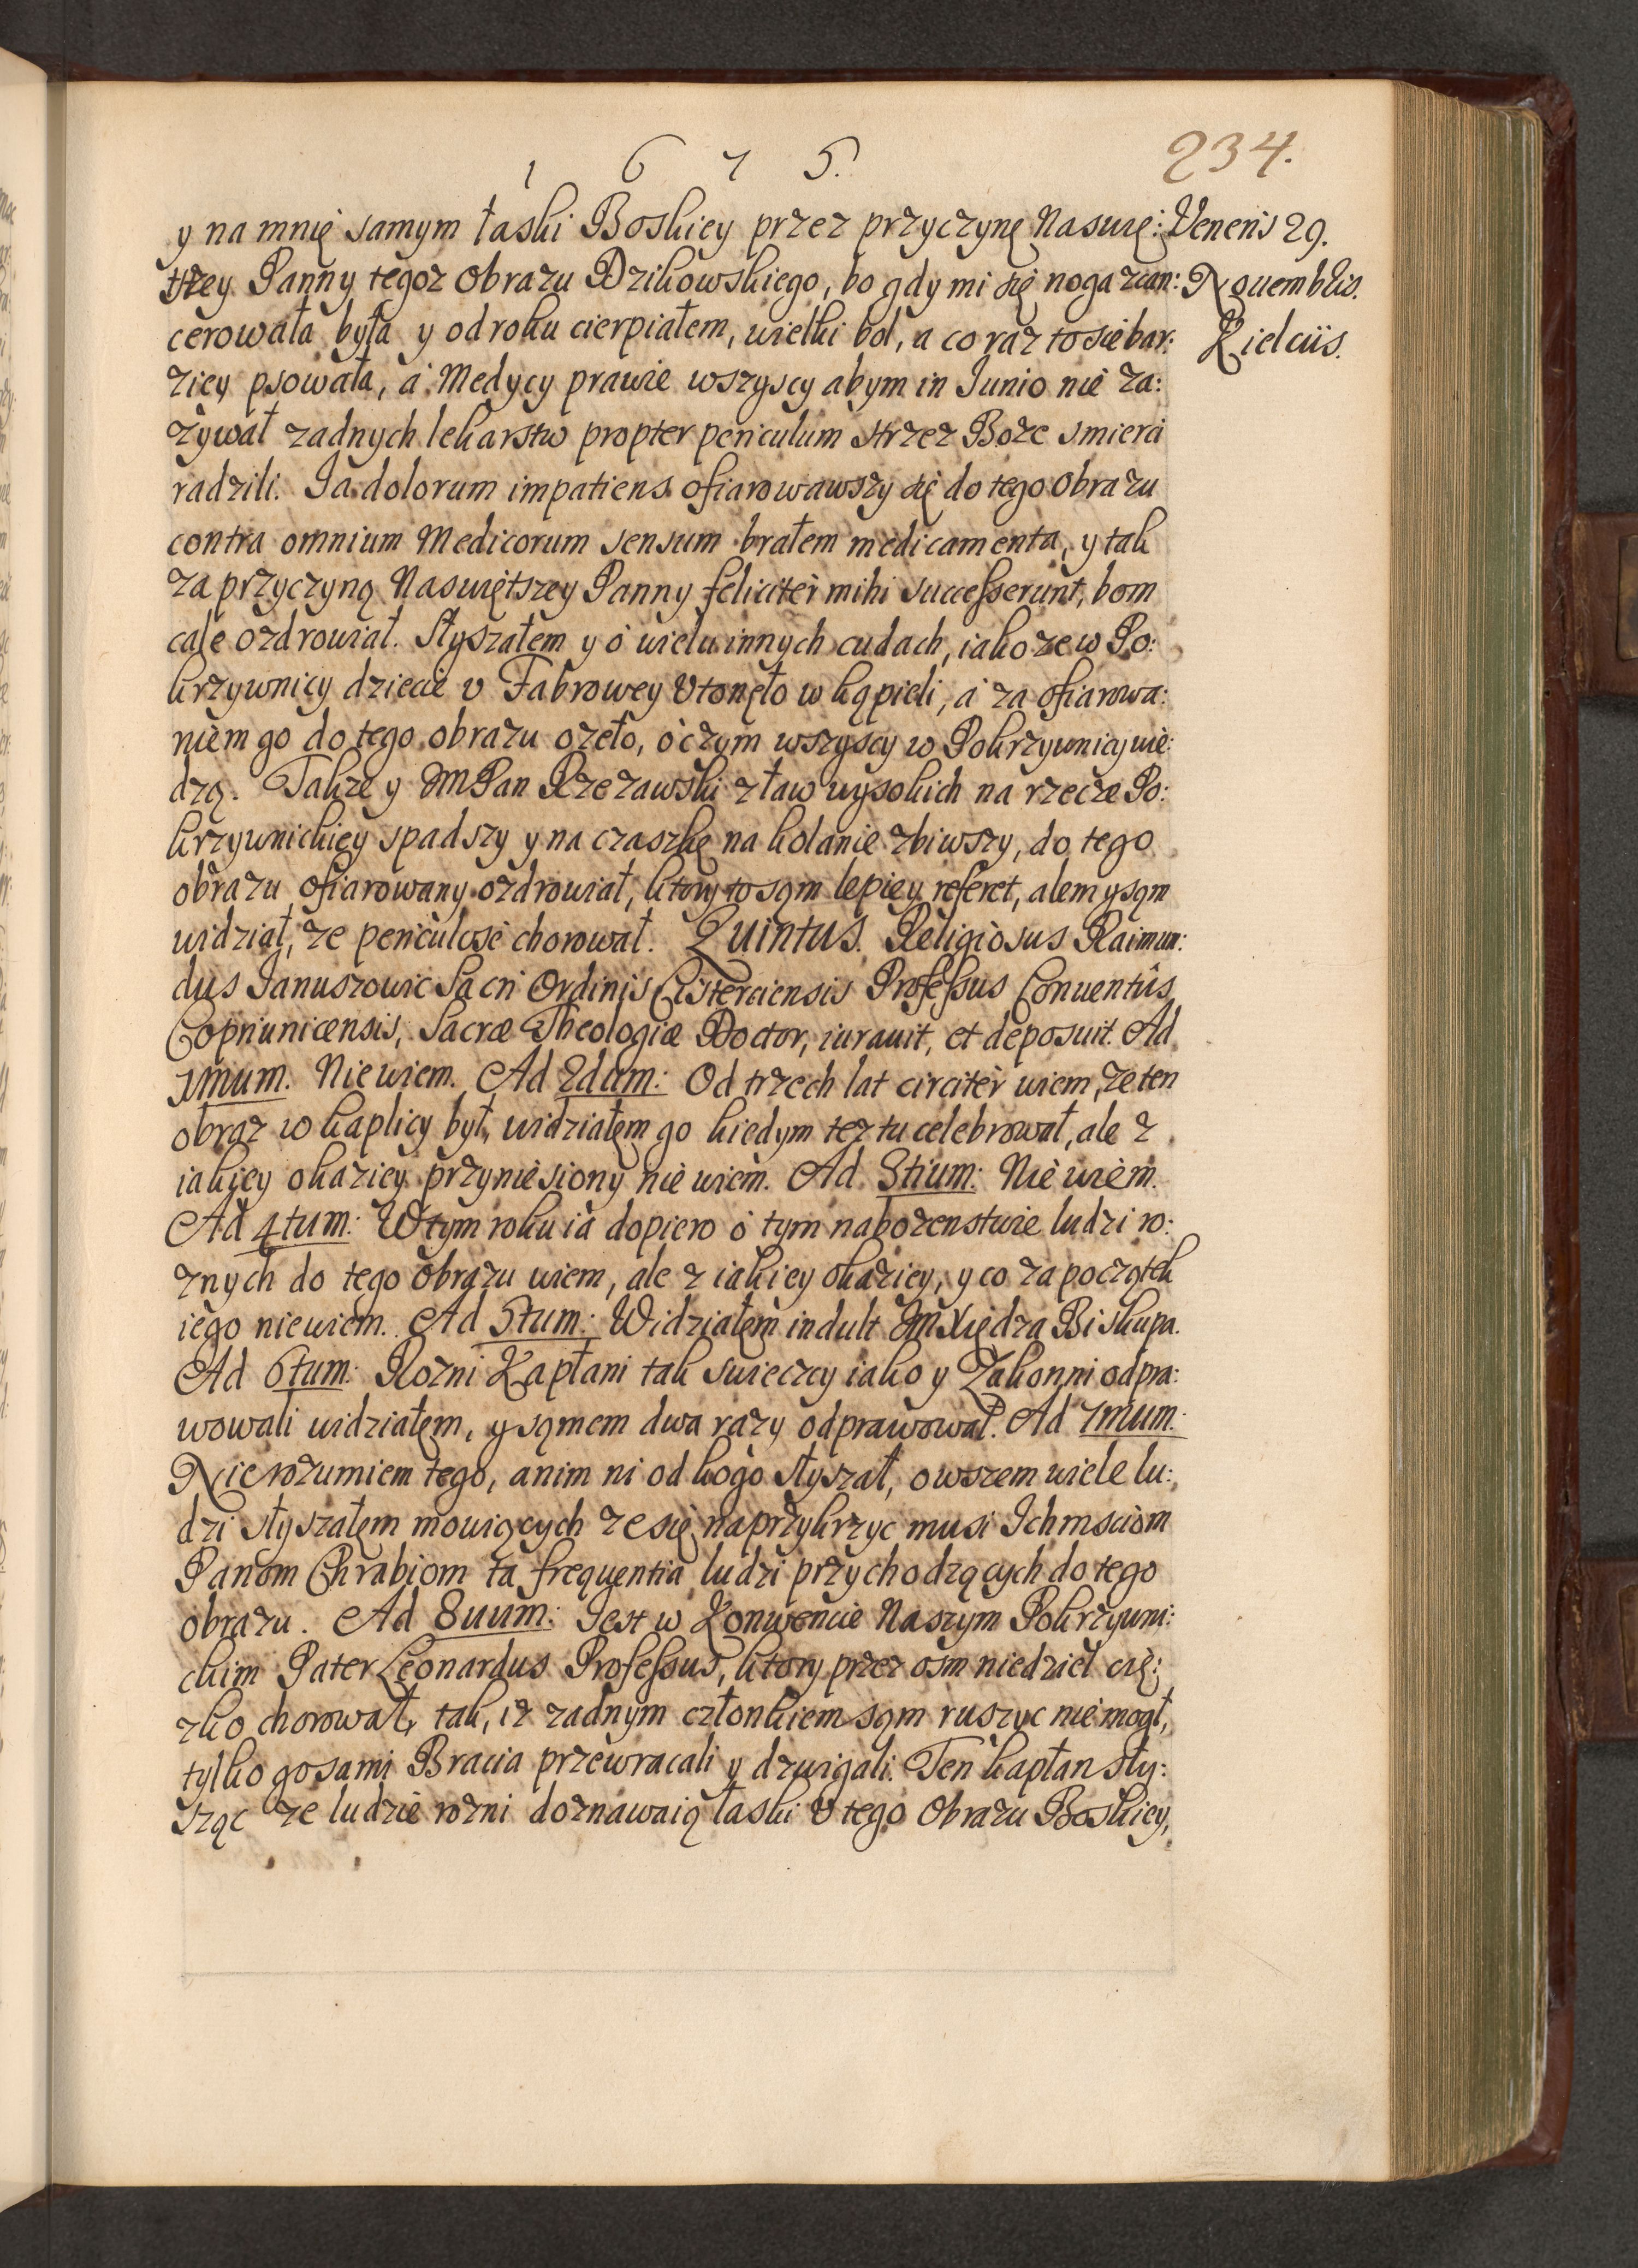 1 6 7 5.
234.
y na mnię samym łaski Boskiey przez przyczynę Naswię:
tszey Panny tegoz Obrazu Dzikowskiego, bo gdy mi się noga zcan:
cerowała była y od roku cierpiałem, wielki bol, a co raz to sie bar:
ziey psowała, á Medycy prawie wszyscy abym in Iunio nie za:
zywał zadnych lekarstw propter periculum strzez Boze smierci
radzili. Ia dolorum impatiens ofiarowawszy się do tego Obrazu
contra omnium Medicorum sensum brałem medicamenta, y tak
za przyczyną Naswiętszey Panny feliciter mihi successerunt, bom
cale ozdrowiał. Słyszałem y ó wielu innych cudach, iako ze w Po:
krzywnicy dziecie v Fabrowey Utonęło w kąpieli, á za ofiarowa:
niem go do tego obrazu ozeło, ó czym wszyscy w Pokrzywnicy wie:
dzą. Takze y JMPan Rzezawski z ław wysokich na rzecze Po:
krzywnickiey spadszy y na czaszkę na kolanie zbiwszy, do tego
obrazu ofiarowany ozdrowiał, ktory to sąm lepiey referet, alem y sąm
widział, ze periculosè chorował. Quintus. Religiosus Raimun:
dus Ianuszowic Sacri Ordinis Cisterciensis Professus Conuentûs
Copriunicensis, Sacræ Theologiæ Doctor, iurauit, et deposuit. Ad
1mum. Nie wiem. Ad 2dum: Od trzech lat circiter wiem, ze ten
obraz w kaplicy był, widziałem go kiedym tez tu celebrował, ale z
iakiey okaziey przyniesiony nie wiem. Ad 3tium: Nie wiem.
Ad 4tum: W tym roku ia dopiero ó tym nabozenstwie ludzi ro:
znych do tego Obrazu wiem, ale z iakiey okaziey, y co za początek
iego nie wiem. Ad 5tum: Widziałem indult JmXiędza Biskupa.
Ad 6tum: Rozni Kapłani tak swieczcy iako y Zakonni odpra:
wowali widziałem, y sąmem dwa razy odprawował. Ad 7mum:
Nie rozumiem tego, anim ni od kogo słyszał, owszem wiele lu:
dzi słyszałem mowiących ze się naprzykrzyc musi Ichmsciom
Panom Chrabiom ta frequentia ludzi przychodzących do tego
obrazu. Ad 8uum: Iest w Konwencie Naszym Pokrzywni:
ckim Pater Leonardus Professus, ktory przez osm niedziel cię:
zko chorował, tak, iz zadnym członkiem sąm ruszyc nie mogł,
tylko go sami Bracia przewracali y dzwigali. Ten kapłan sły:
sząc ze ludzie rozni doznawaią łaski U tego Obrazu Boskiey,
Veneris 29.
Nouembris.
Kielciis.